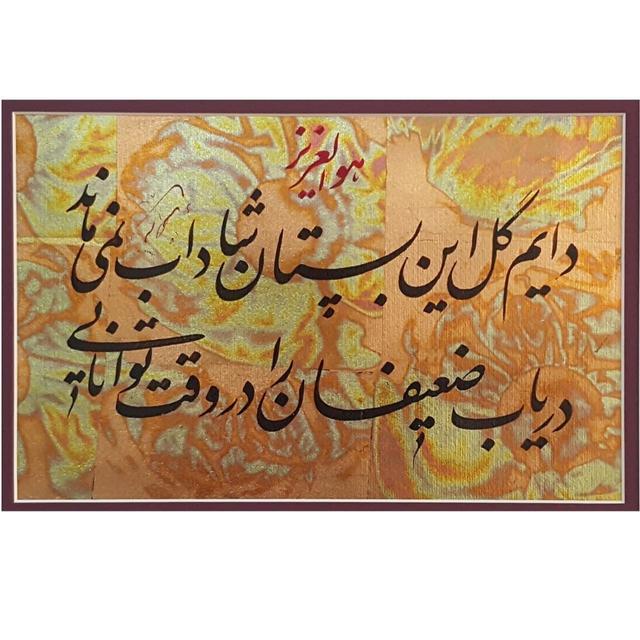 هوالعزیز
دایم گل این بستان شاداب نمی ماند
دریاب ضعیفان را در وقت توانایی